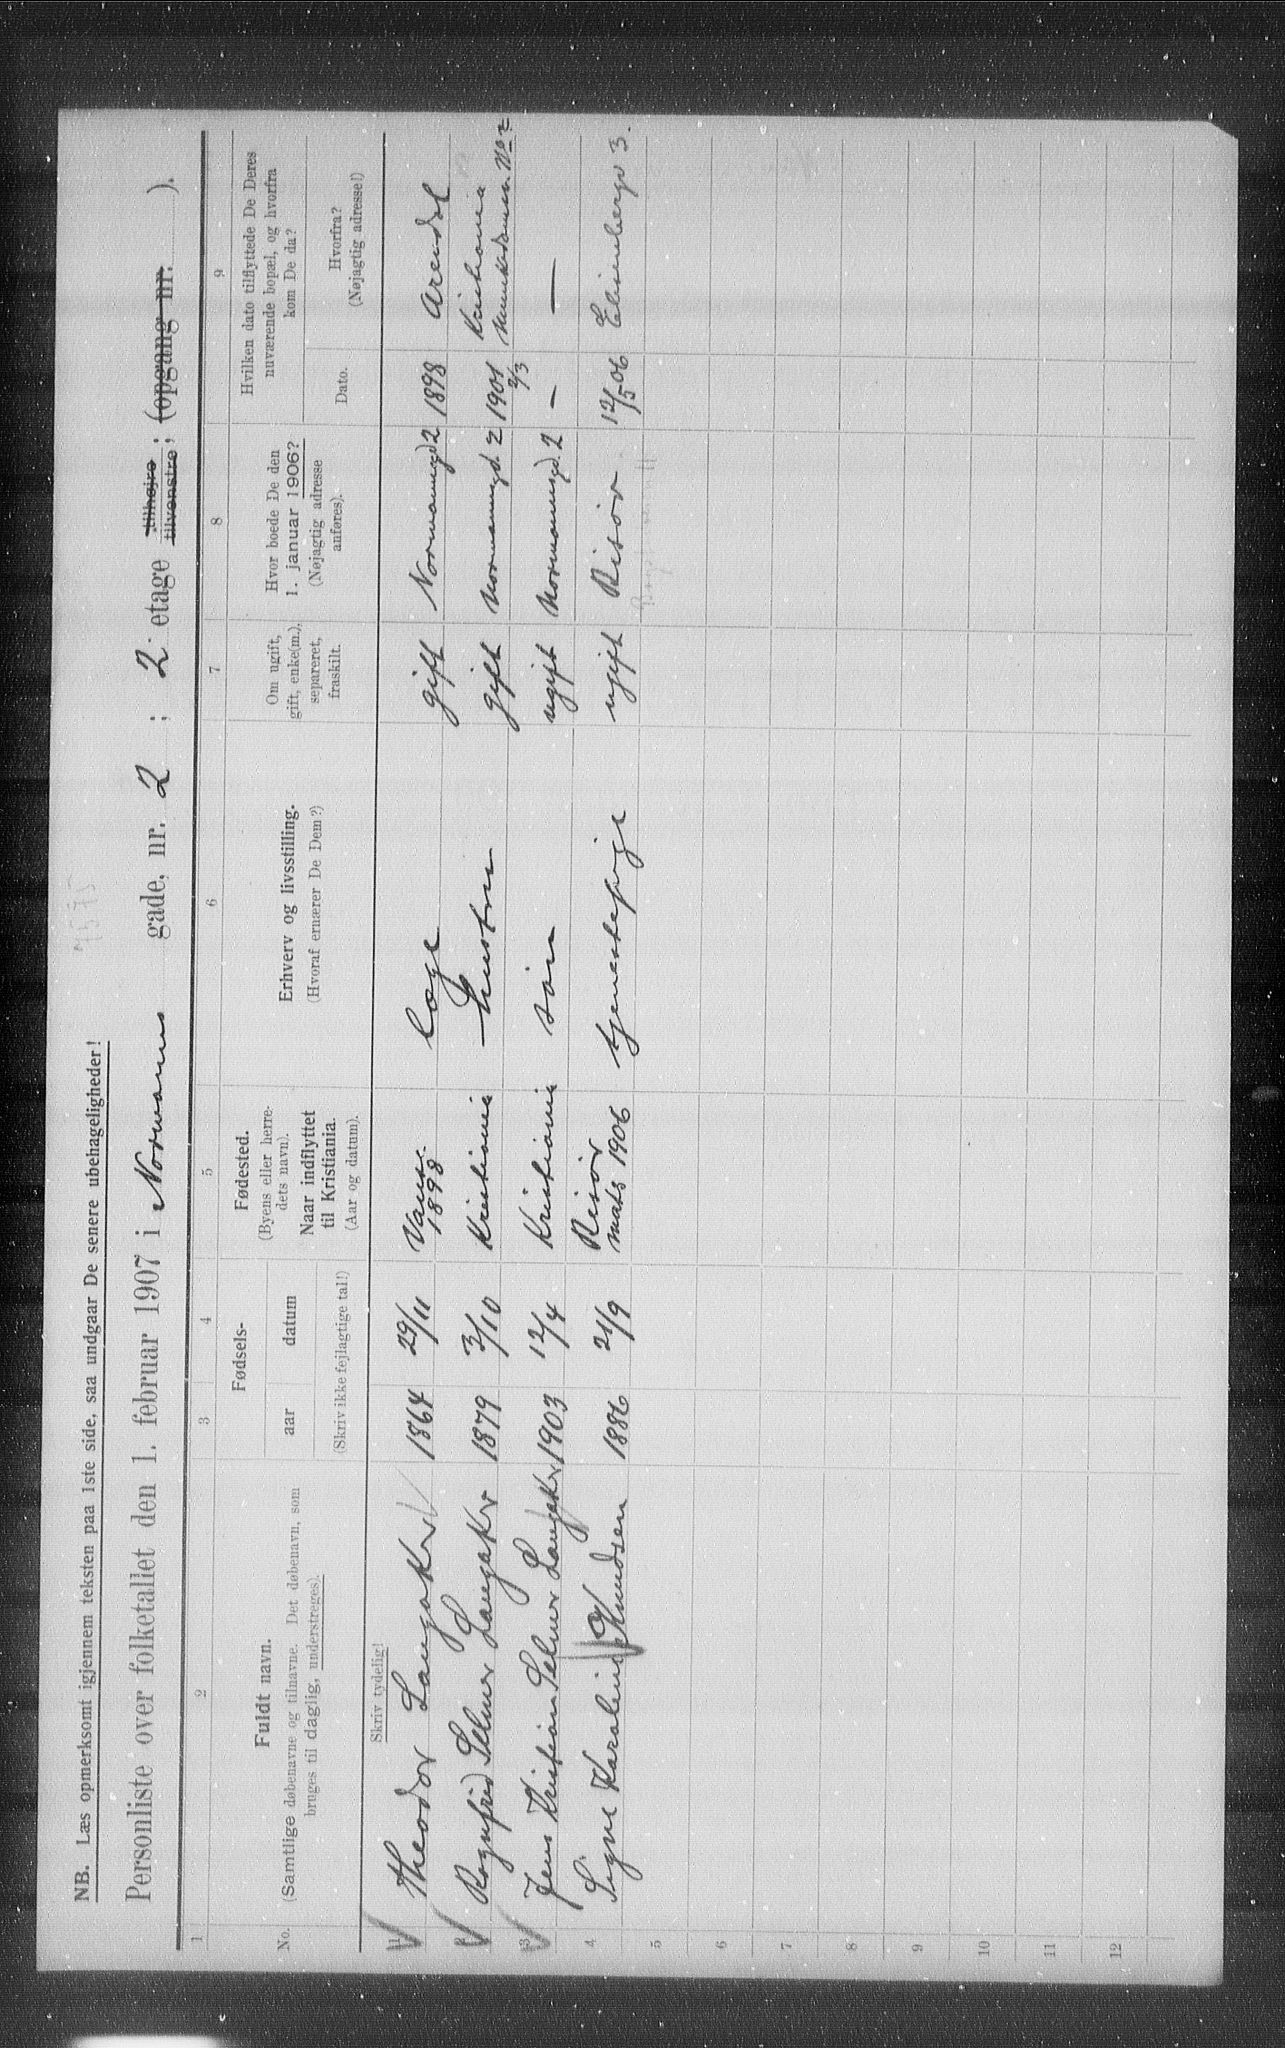 NB. Læs opmerksomt igjennem teksten paa 1ste side, saa undgaar De senere ubehageligheder!
Personliste over folketallet den 1. februar 1907 i Normanns gade, nr. 2 ; 2 etage tilhøjre tilvenstre; (opgang nr. ).
1 2 3 4 5 6 7 8 9
No.
Fuldt navn.
(Samtlige døbenavne og tilnavne. Det døbenavn, som
bruges til daglig, understreges).
Fødsels-
aar datum
(Skriv ikke fejlagtige tal!)
Fødested.
(Byens eller herre-
dets navn).
Naar indflyttet
til Kristiania.
(Aar og datum).
Erhverv og livsstilling.
(Hvoraf ernærer De Dem?)
Om ugift,
gift, enke(m.),
separeret,
fraskilt.
Hvor boede De den
1. januar 1906?
(Nøjagtig adresse
anføres).
Hvilken dato tilflyttede De Deres
nuværende bopæl, og hvorfra
kom De da?
Dato.
Hvorfra?
(Nøjagtig adresse!)
Skriv tydelig!
1 Theodor Langaker 1864 29/11 Vanse 1898 læge gift Normannsgd 2 1898 Arendal
2 Ragnfrid Selmer Langaker 1879 3/10 Kristiania hustru gift Normannsgd. 2 1901 2/3 Kristiania Munkedamsv. No 2
3 Jens Kristian Selmer Langaker 1903 12/4 Kristiania søn ugift Normannsgd. 2 — —
4 Signe Karoline Knudsen 1886 21/9 Risør mats 1906 tjenestepige ugift Risør 12/5 06 Eilenbergv 3.
5
6
7
8
9
10
11
12